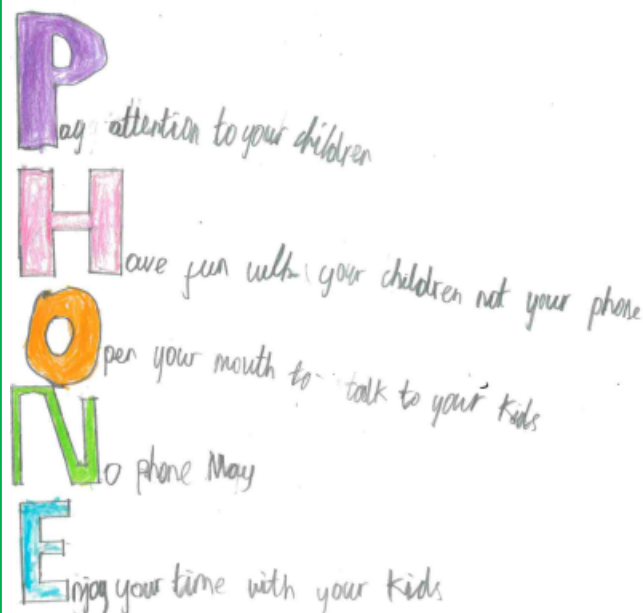 Pay attention to your children
Have fun with your children not your phone
Open your mouth to talk to your kids
No phone May
Enjoy your time with your kids